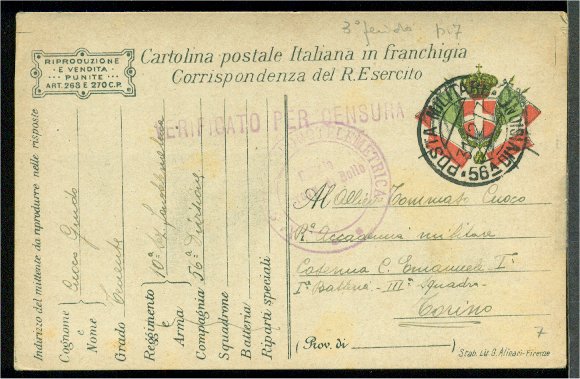 3° feudo p. 7
RIPRODUZIONE
E VENDITA
PUNITE
ART. 268 E 270 C.P.
Cartolina postale Italiana in franchigia
Corrispondenza del R. Esercito
VERIFICATO PER CENSURA
POSTA MILITARE 56A DIVISIONE
Al Allievo Tommaso Cuoco
Ra Accademia militare
Caserma C. Emanuele I°
Ia Batteria - IIIa Squadra
Torino
(Prov. di )
7
Stab. Lit. G. Alinari-Firenze
Indirizzo del mittente da riprodurre nelle risposte
Cognome Cuoco Guido
e
Nome
Grado Tenente
Reggimento 10°
e
Arma
Compagnia 56a Divisione
Squadrone
Batteria
Riparti speciali